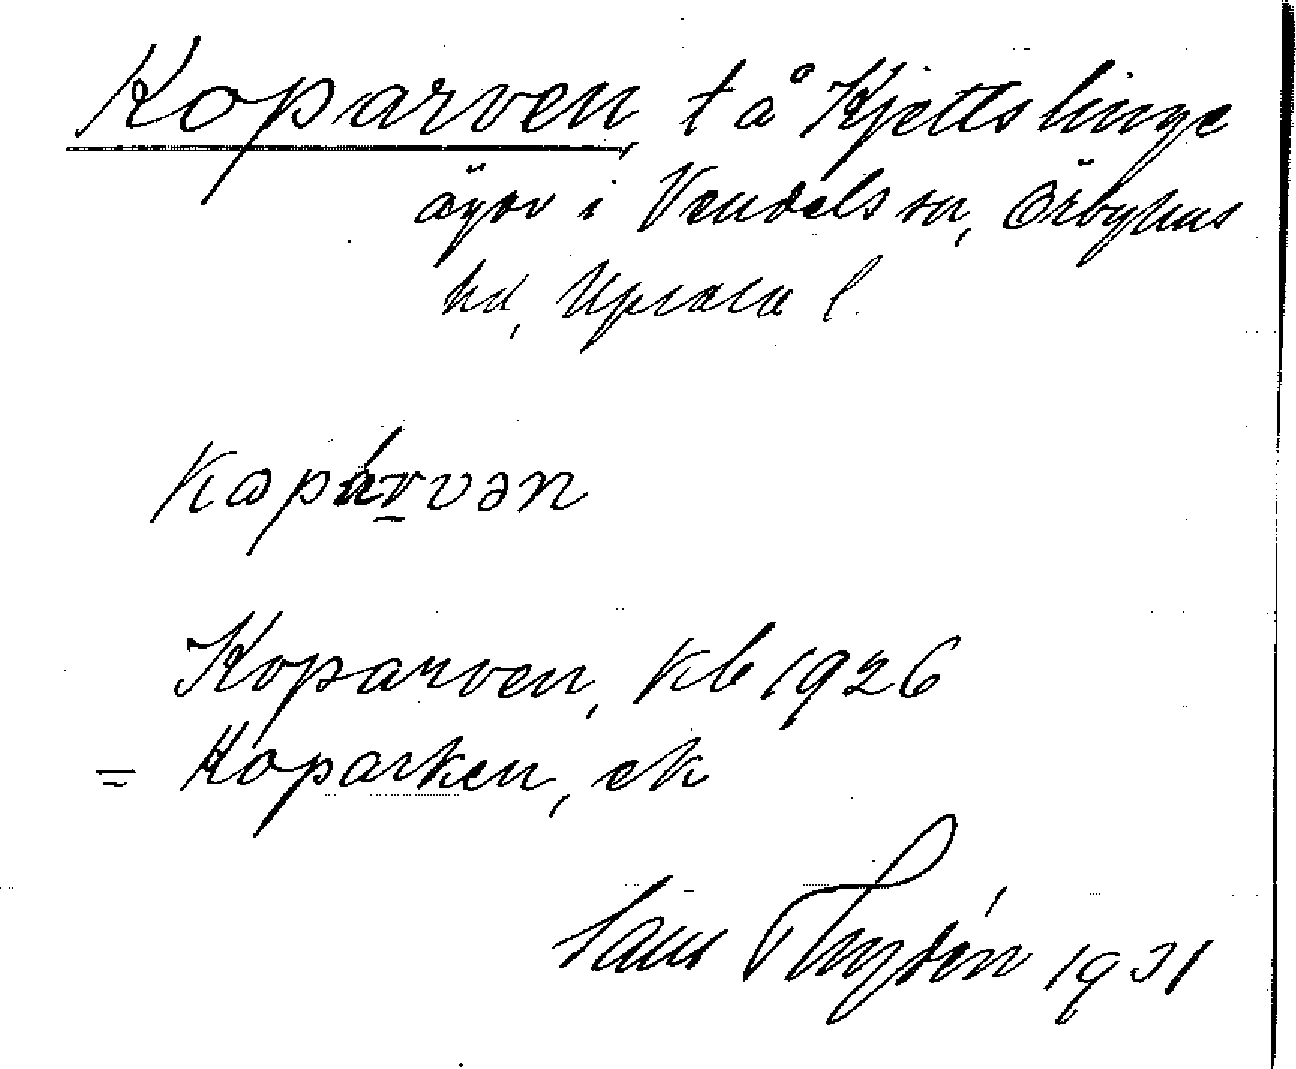 Koparven, t å Kjettslinge
ägor i Vendels sn, Örbyhus
hd, Upsala l.
Kopárvən
Koparven, kb 1926
= Koparken, ek
Sam Thydén 1931